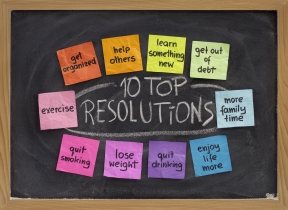 get
organized
help
others
learn
something
new
get out
of
debt
exercise
10 TOP
RESOLUTIONS
more
family
time
quit
smoking
lose
weight
quit
drinking
enjoy
life
more